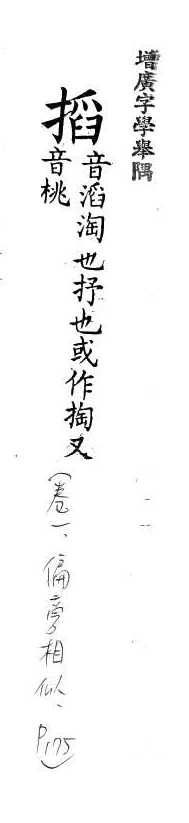 增廣字學舉隅
搯音滔淘也抒也或作掏又
音桃
(卷一、偏旁相似、P175)